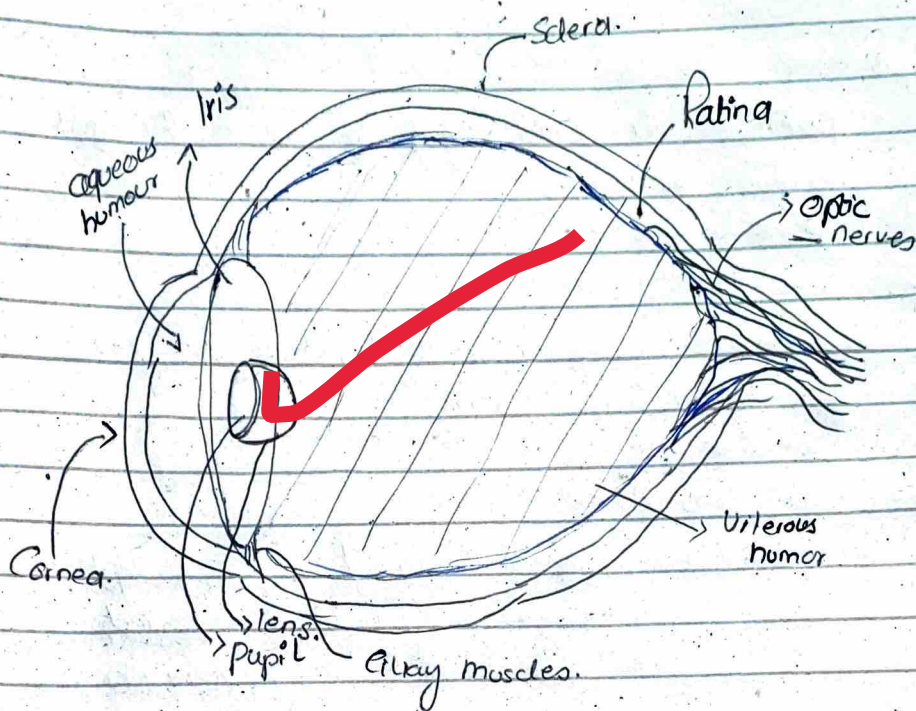 Sclera.
Iris
Ratina
aqueous
humour
Optic
nerves
Viterous
humor
Cornea.
lens.
Pupil
Cilray muscles.